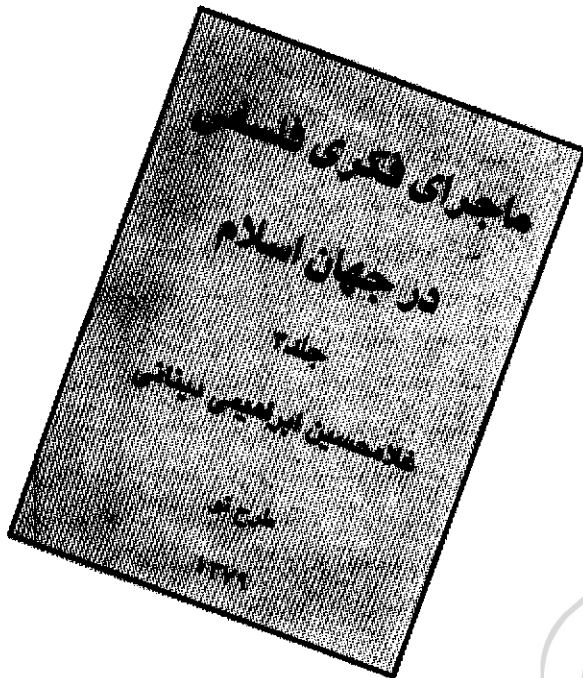 ماجرای فکری فلسفی
در جهان اسلام
جلد۲
غلامحسین ابراهیمی دینانی
طرح نو
۱۳۷۹